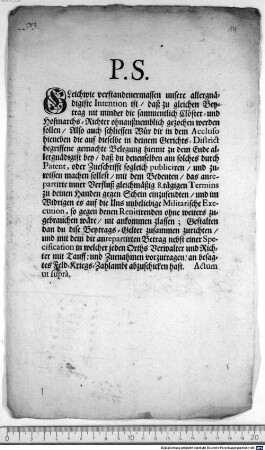 P. S.
Gleichwie verstandenermassen unsere allergnä-
digiste Intention ist / daß zu gleichen Bey-
trag nit minder die sammentlich Clöster- und
Hofmarchs-Richter ohnaußnemblich gezochen werden
sollen / Also auch schliessen Wür dir in dem Accluso
hieneben die auf dieselbe in deinem Gerichts-District
begriffene gemachte Belegung hiemit zu dem Ende al-
lergnädigist bey / daß du denenselben ein solches durch
Patent, oder Zueschrifft sogleich publiciren / und zu-
wissen machen sollest / mit dem Bedeuten / das anre-
partirte inner Verfluß gleichmässig 8. tägigen Termins
zu deinen Handen gegen Schein einzusenden / und im
Widrigen es auf die Uns unbeliebige Militarische Exe-
cution, so gegen denen Renitirenden ohne weiters zu-
gebrauchen wäre / nit ankommen zlassen; Gestalten
dan du dise Beytrags-Gelter zusammen zurichten /
und mit dem dir anrepartirten Betrag nebst einer Spe-
cification in welcher jeden Orths Verwalter und Rich-
ter mit Tauff- und Zuenahmen vorzutragen / an besag-
tes Feld-Kriegs-Zahlambt abzuschicken hast. Actum
ut suprà.